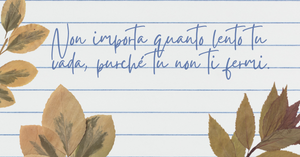 Non importa quanto lento tu
vada, purché tu non ti fermi.